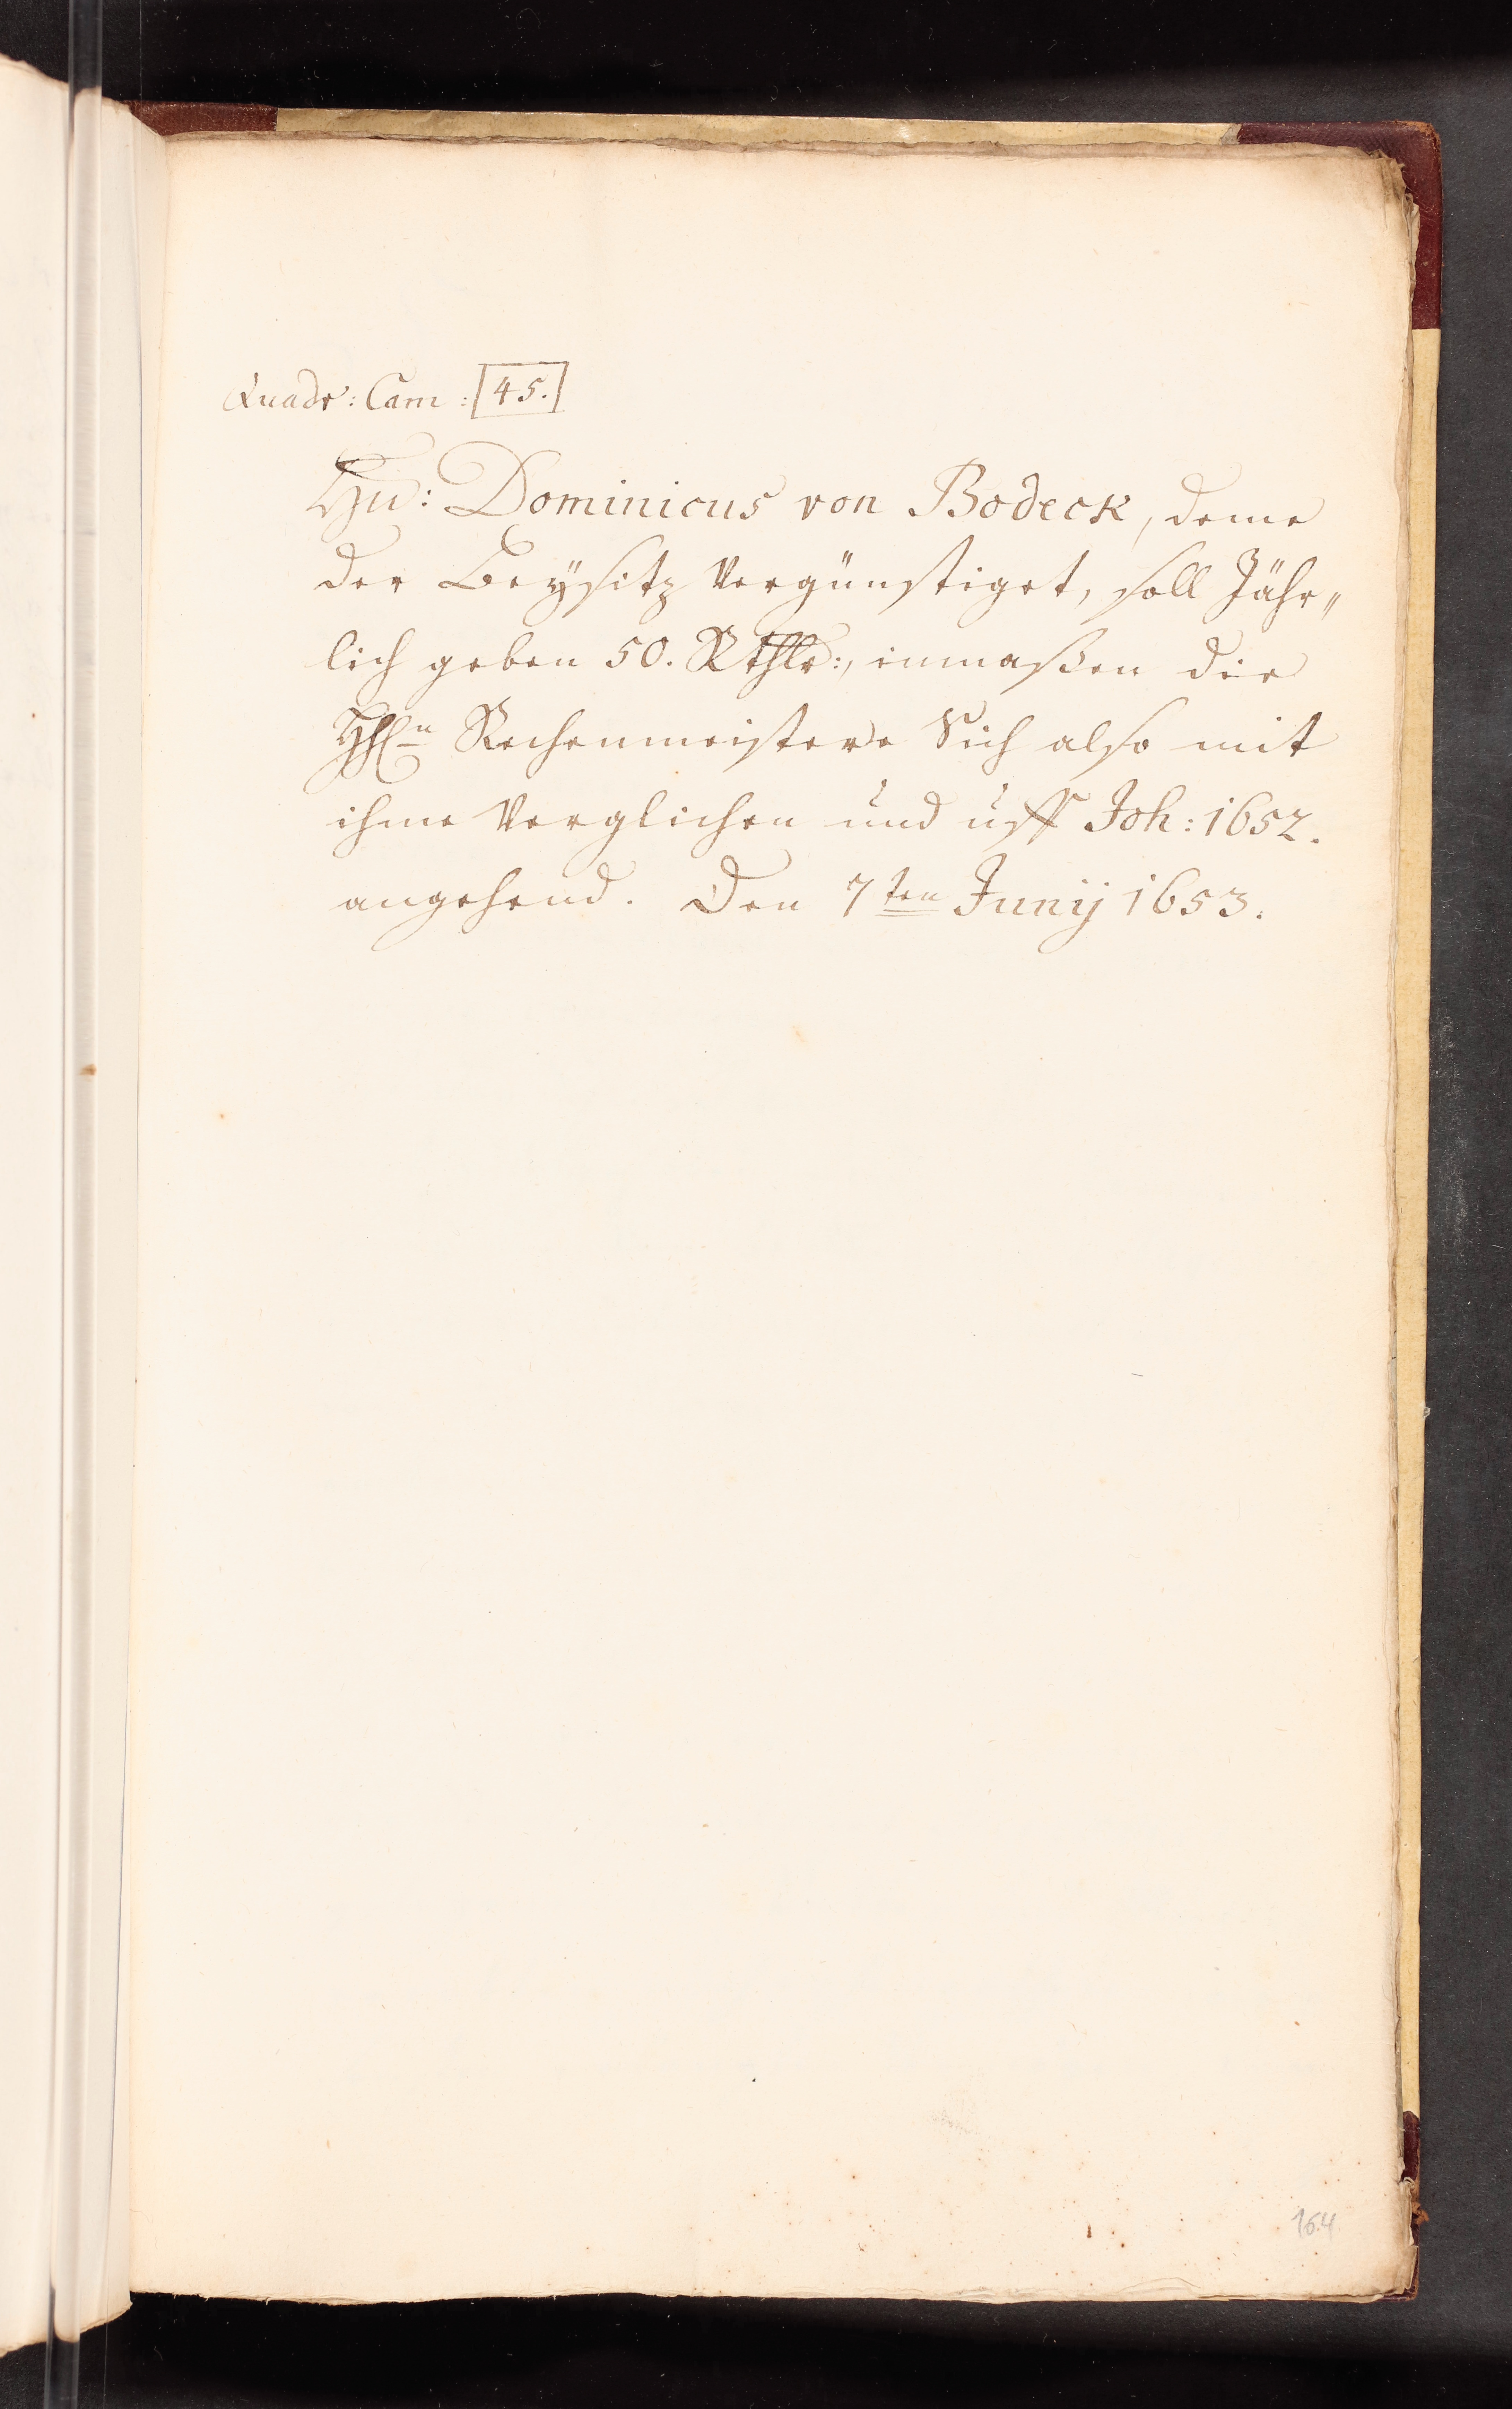 Quadr: Cam: [45.]
Hn: Dominicus von Bodeck, deme
der Beÿsitz vergünstiget, soll Jähr„
lich geben 50. Rthlr:, inmaßen die
HHn Rechenmeistere Sich also mit
ihme verglichen und uff Joh: 1652.
angehend. Den 7ten Junij 1653.
164